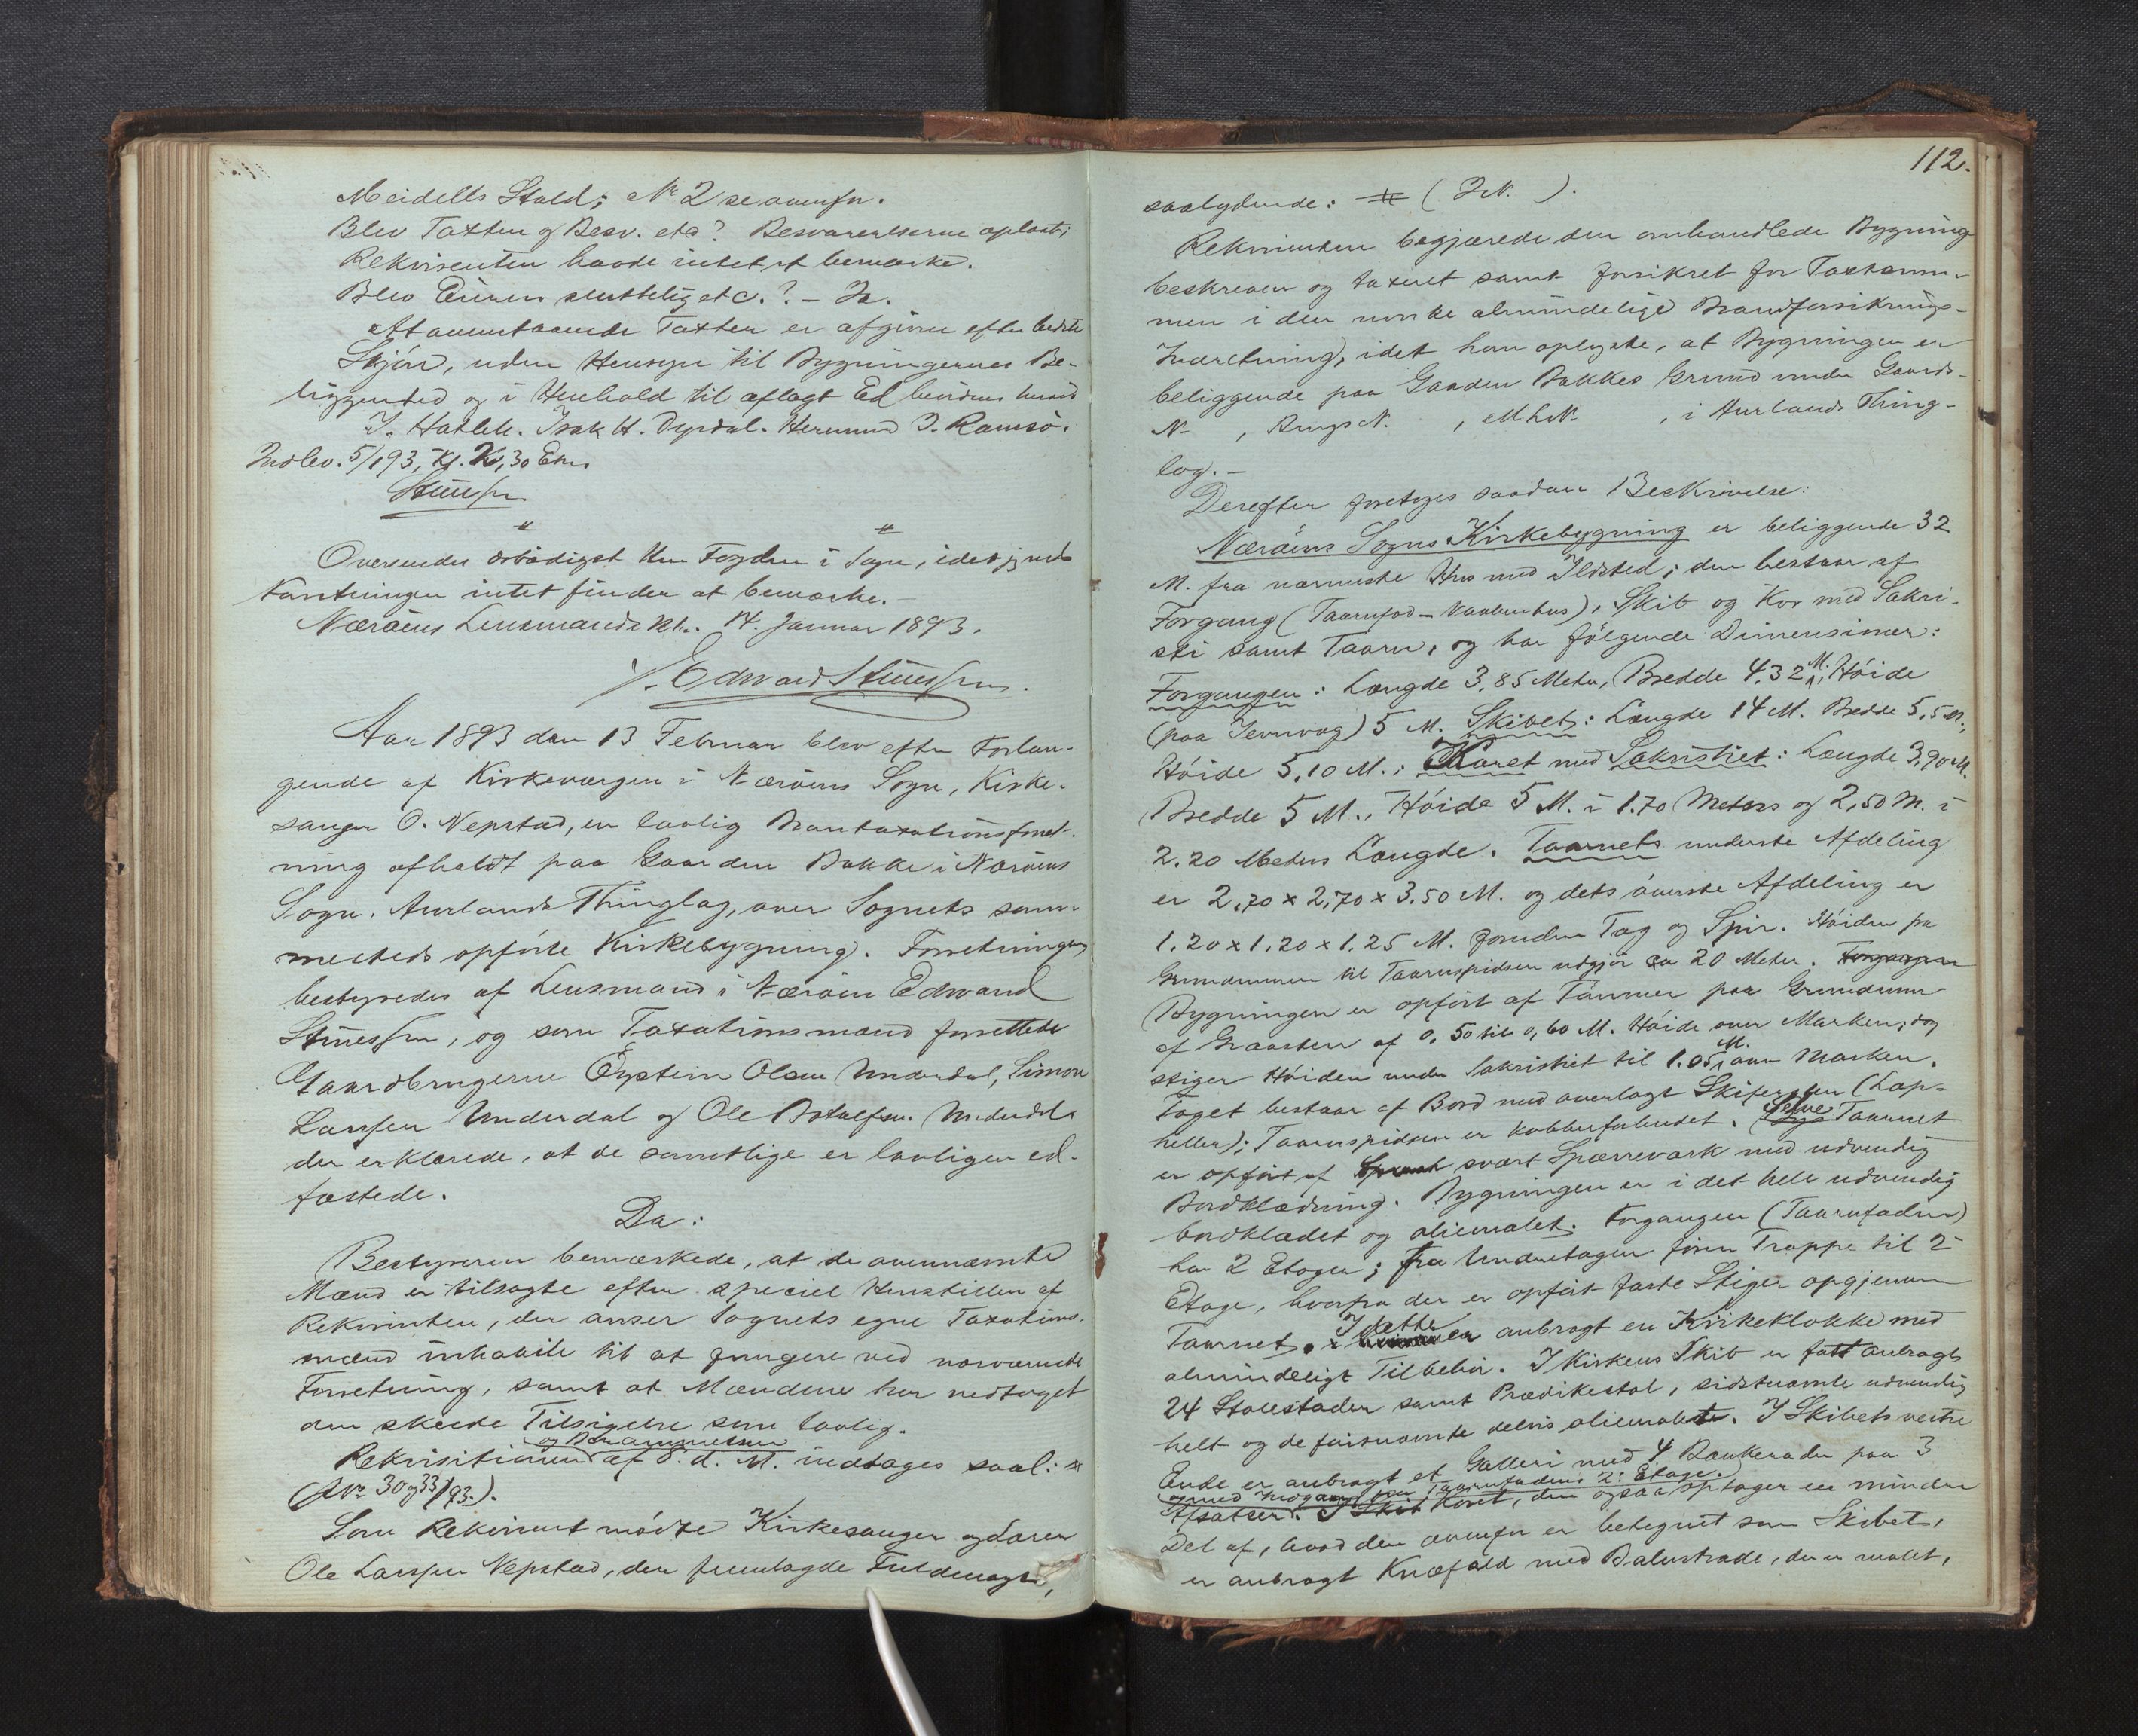 Meidells Stald; No 2 se ovenfor.
Blev Taxten og Besv. etc? Besvarelserne oplæst;
Rekvirenten havde intet at bemærke.
Blev Eieren sluttelig etc.? - Ja.
At ovenstaaende Taxter er afgivne efter bedste
Skjøn, uden Hensyn til Bygningernes Be-
liggenhed og i Henhold til aflagt Ed bevidnes herved
I. Hatleli. Isak H. Dyrdal. Hermund I. Ramsø.
Indlev. 5/1 93, Kl. 2,30 Em.
Stuessen
Oversendes ærbødigst Herr Fogden i Sogn, idet jeg ved
Forretningen intet finder at bemærke. -
Nærøens Lensmandskt.. 14. Januar 1893.
Edward Stuessen.
Aar 1893 den 13 Februar blev efter Forlan-
gende af Kirkeværgen i Nærøens Sogn, Kirke-
sanger O. Nepstad, en lovlig Brantaxationsforret-
ning afholdt paa Gaarden Bakke i Nærøens
Sogn, Aurlands Thinglag, over Sognets sam-
mesteds opførte Kirkebygning. Forretningen
bestyredes af Lensmand i Nærøen Edward
Stuessen, og som Taxationsmænd forrettede
Gaardbrugerne Øystein Olsen Underdal, Simon
Larssen Underdal og Ole Botolfsen Underdal
der erklærede, at de samtlige er lovligen ed-
fæstede.
Da:
Bestyreren bemærkede, at de ovennævnte
Mænd er tilsagte efter speciel Henstillen af
Rekvirenten, der anser Sognets egne Taxations-
mænd inhabile til at fungere ved nærværende
Forretning, samt at Mændene har vedtaget
den skeede Tilsigelse som lovlig.
Rekvisitionen af 8. d. M. indtages saal:
(No 30 og 33/93.).
Som Rekvirent mødte Kirkesanger og Lærer
Ole Larssen Nepstad, der fremlagde Fuldmagt,
112.
saalydende: (IN. ).
Rekvirenten begjærede den omhandlede Bygning
beskreven og taxeret samt forsikret for Taxtsum-
men i den norske almindelige Brandforsikrings-
Indretning, idet han oplyste, at Bygningen er
beliggende paa Gaarden Bakkes Grund under Gaards-
N. , Brugs N. , M L N. , i Aurlands Thing-
lag. -
Derefter foretoges saadan Beskrivelse:
Nærøens Sogns Kirkebygning er beliggende 32
M. fra nærmeste Hus med Ildsted; den bestaar af
Forgang (Taarnfod - Vaabenhus), Skib og Kor med Sakri-
sti samt Taarn, og har følgende Dimensioner:
Forgangen: Længde 3,85 Meter, Bredde 4,32 M., Høide
(paa Jevnvæg) 5 M. Skibet: Længde 14 M. Bredde 5,5 M.,
Høide 5,10 M.; Koret med Sakristiet: Længde 3,90 M.
Bredde 5 M., Høide 5 M. i 1.70 Meters og 2,50 M. i
2.20 Meters Længde. Taarnets underste Afdeling
er 2.70 x 2,70 x 3.50 M. og dets øverste Afdeling er
1.20 x 1.20 x 1.25 M. foruden Tag og Spir. Høiden fra
Grundmuren til Taarnspidsen udgjør ca 20 Meter. Forgangen
Bygningen er opført af Tømmer paa Grundmur
af Graasten af 0,50 til 0,60 M. Høide over Marken; dog
stiger Høiden under Sakristiet til 1.05 M. over Marken.
Taget bestaar af Bord med overlagt Skifersten (Lap-
heller); Taarnspidsen er kobberforbundet. Selve Taarnet
er opført af svært Sperreværk med udvendig
Bordklædning. Bygningen er i det hele udvendig
bordklædet og oliemalet. Forgangen (Taarnfoden)
har 2 Etager; fra Underetagen fører Trappe til 2
Etage, hvorfra der er opført faste Stiger opgjennem
Taarnet. I dette er anbragt en Kirkeklokke med
almindeligt Tilbehør. I Kirkens Skib er fast anbragt
24 Stolestader samt Prædikestol, sidstnævnte udvendig
helt og de førstnævnte delvis oliemalet. I Skibets vestre
Ende er anbragt et Galleri med 4 Bænkerader paa 3
og med Indgang fra Taarnfodens 2: Etage.
Afsatser. I Skib Koret, der ogsaa optager en mindre
Del af, hvad der ovenfor er betegnet som Skibet,
er anbragt Knæfald med Balustrade, der er malet,